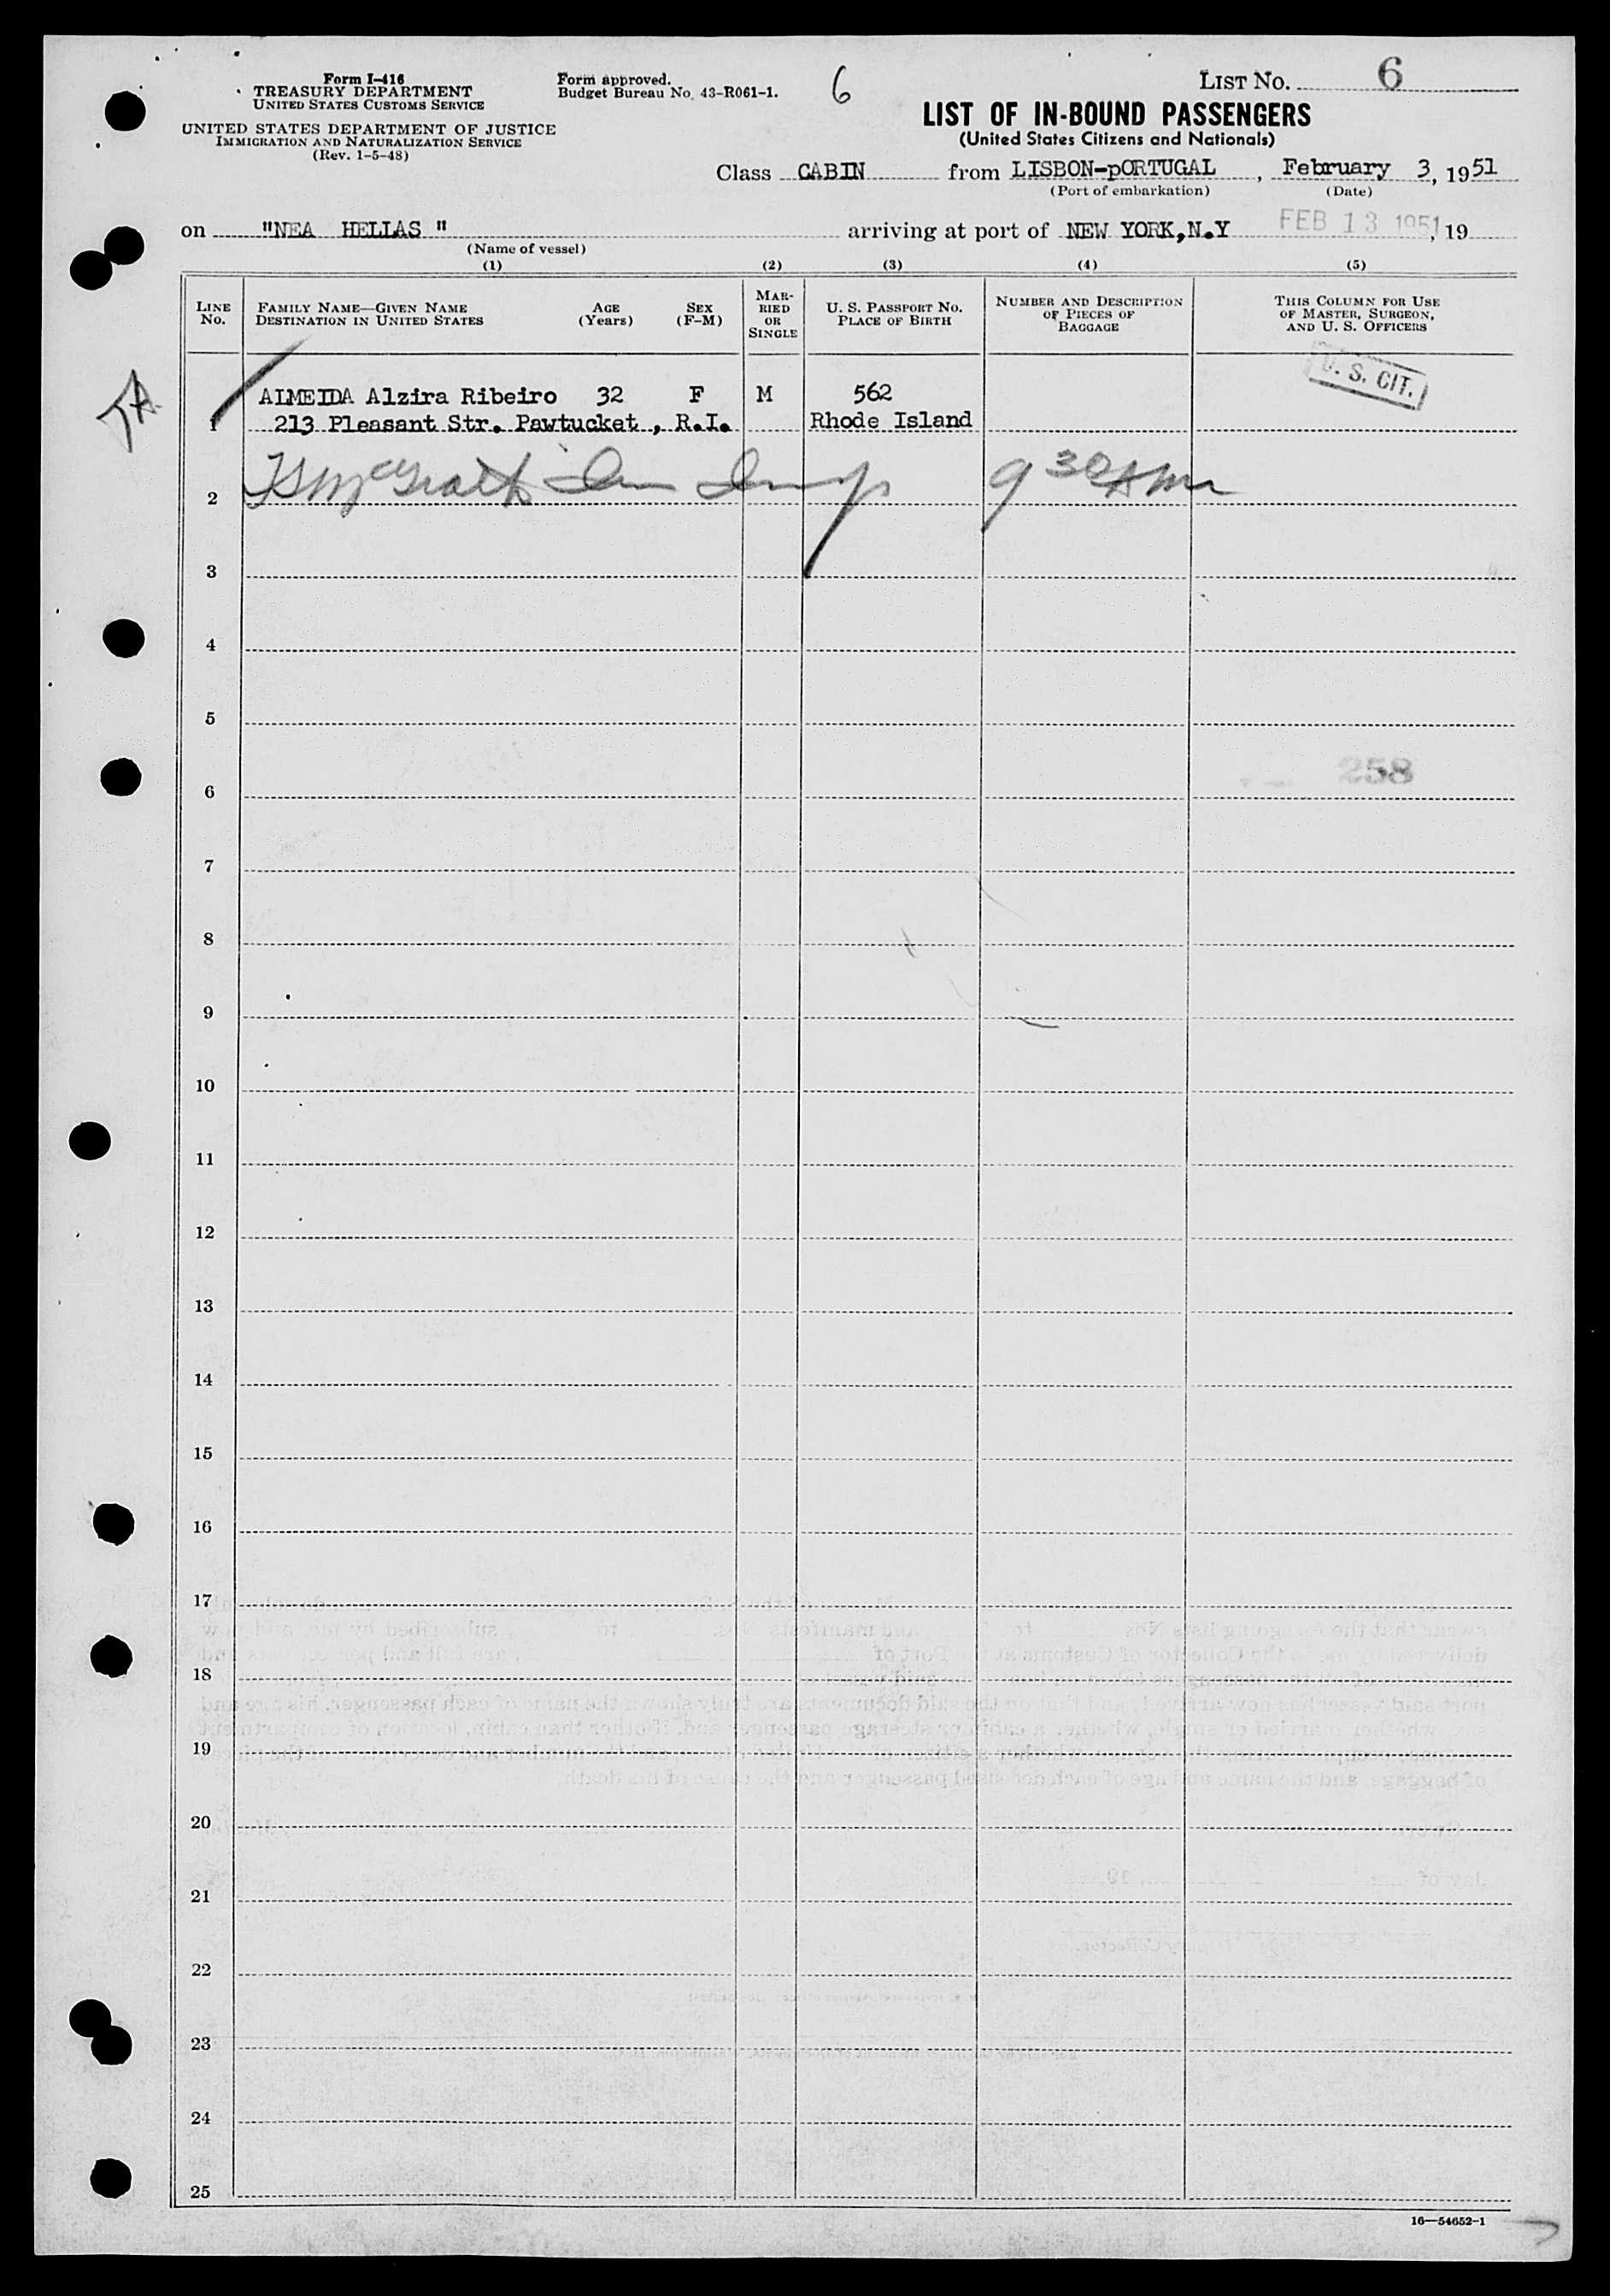 Form I-416
TREASURY DEPARTMENT
UNITED STATES CUSTOMS SERVICE
UNITED STATES DEPARTMENT OF JUSTICE
IMMIGRATION AND NATURALIZATION SERVICE
(Rev. 1-5-48)
Form approved.
Budget Bureau No. 43-R061-1.
6
LIST NO. 6
LIST OF IN-BOUND PASSENGERS
(United States Citizens and Nationals)
Class CABIN from LISBON-pORTUGAL, February 3, 1951
(Port of embarkation) (Date)
on "NEA HELLAS " arriving at port of NEW YORK,N.Y FEB 13 1951, 19
(Name of vessel)
(1) (2) (3) (4) (5)
LINE No.
FAMILY NAME—GIVEN NAME
DESTINATION IN UNITED STATES
AGE (Years)
SEX (F-M)
MARRIED OR SINGLE
U. S. PASSPORT NO.
PLACE OF BIRTH
NUMBER AND DESCRIPTION
OF PIECES OF
BAGGAGE
THIS COLUMN FOR USE
OF MASTER, SURGEON,
AND U. S. OFFICERS
U. S. CIT.
ALMEIDA Alzira Ribeiro 32 F M 562
1 213 Pleasant Str. Pawtucket , R.I. Rhode Island
2 9 30 AM
3
4
5
258
6
7
8
9
10
11
12
13
14
15
16
17
18
19
20
21
22
23
24
25
16—54652-1